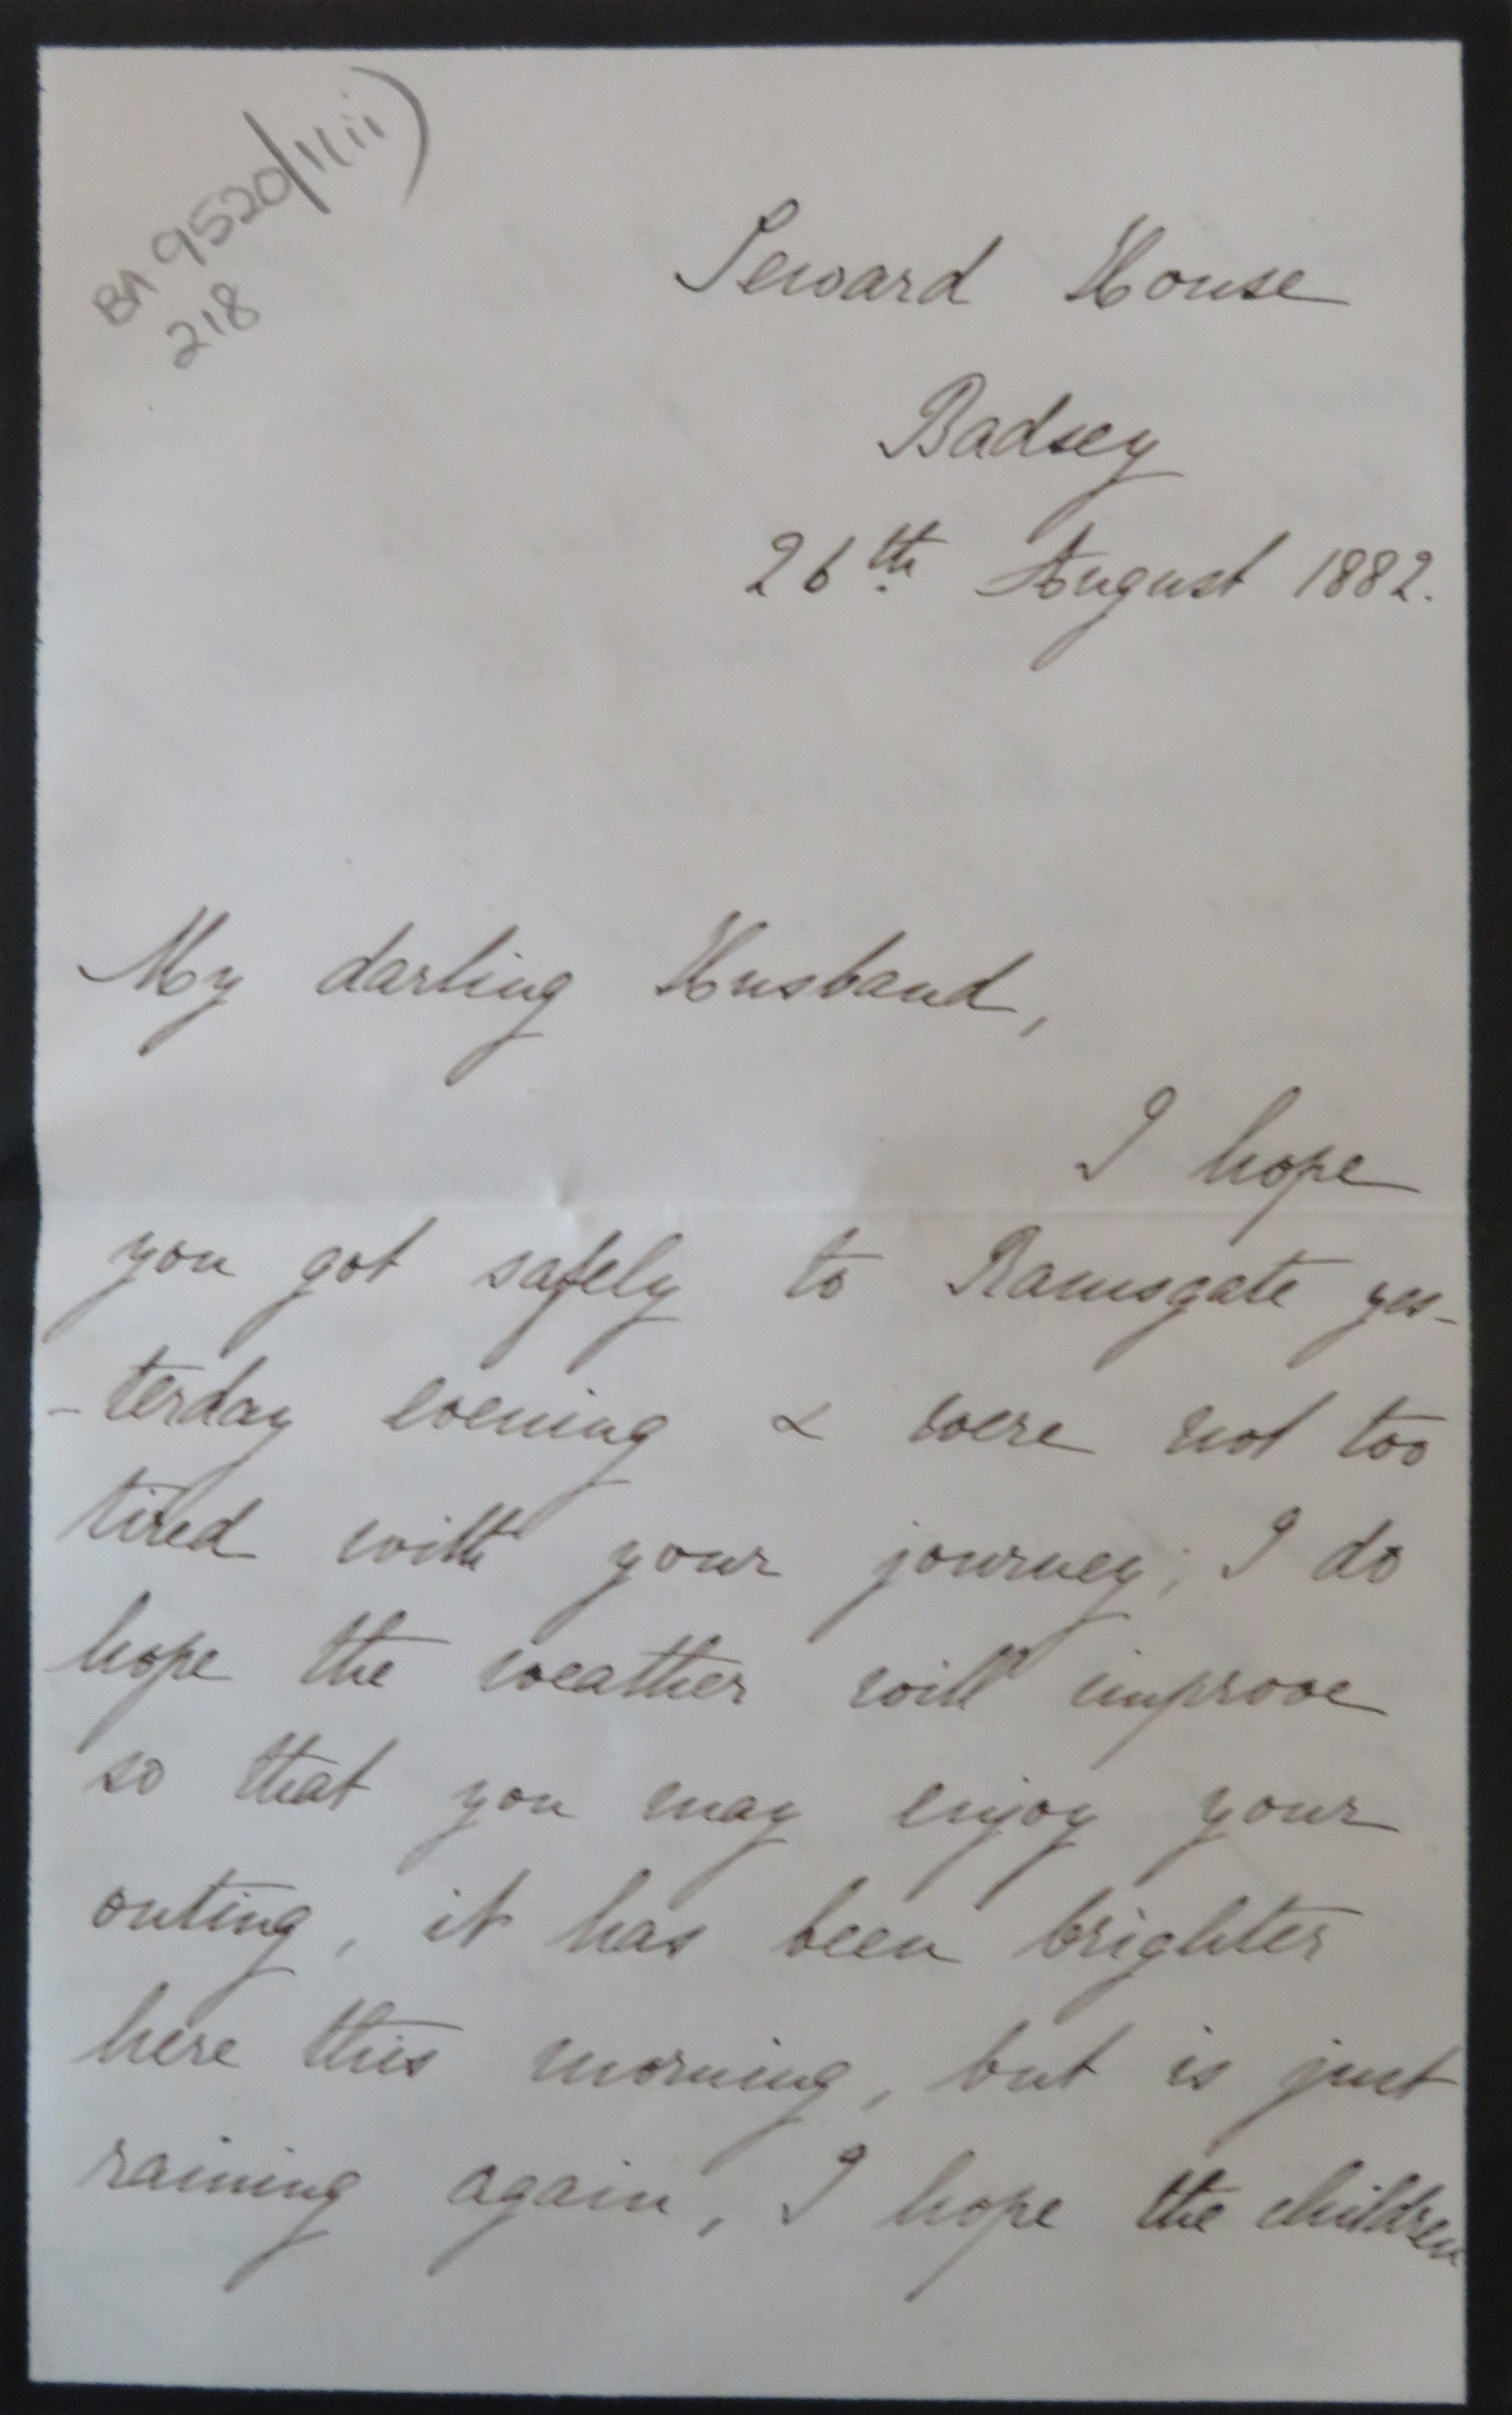 BA 9520/1(ii)
218
Seward House
Badsey
26th August 1882.
My darling Husband,
I hope
you got safely to Ramsgate yes-
-terday evening & were not too
tired with your journey; I do
hope the weather will improve
so that you may enjoy your
outing, it has been brighter
here this morning, but is just
raining again, I hope the children